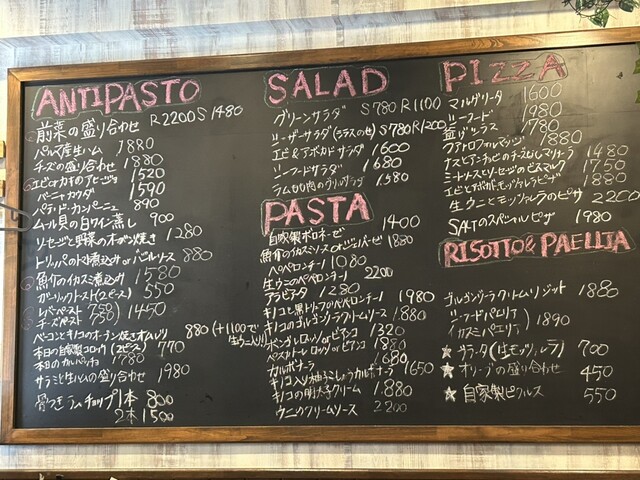 ANTIPASTO
前菜の盛り合わせ R2200 S1480
パルマ産生ハム 1880
チーズの盛り合わせ 1880
エビorカキのアヒージョ 1520
バーニャカウダ 1590
パテ・ド・カンパーニュ 890
ムール貝の白ワイン蒸し 900
ソーセージと野菜のオーブン焼き 1280
トリッパの 880
魚介のイカスミ煮込み 1580
ガーリックトースト(2ピース) 550
レバーペースト 780 1450
チーズペースト
ベーコンとキノコのオーブン焼きオムレツ 880 (+1100で生ウニ入り)
本日の自家製コロッケ(2ピース) 770
本日のカルパッチョ 1780
サラミと生ハムの盛り合わせ 1980
骨つきラムチョップ 1本 800
2本 1500
SALAD
グリーンサラダ S780 R1100
シーザーサラダ S780 R1200
エビ&アボカドサラダ 1600
シーフードサラダ 1680
ラム肉のグリルサラダ 1580
PASTA
自家製ボロネーゼ 1400
魚介のイカスミソースorジェノベーゼ 1880
ペペロンチーノ 1080
生ウニのペペロンチーノ 2200
アラビアータ 1280
キノコと黒トリュフのペペロンチーノ 1980
キノコのゴルゴンゾーラクリームソース 1880
ボンゴレロッソorビアンコ 1320
ペスカトーレロッソorビアンコ 1880
カルボナーラ 1680
キノコ入り柚子こしょうカルボナーラ 1650
キノコの明太子クリーム 1.880
ウニのクリームソース 2200
PIZZA
マルゲリータ 1600
シーフード 1980
釜揚げシラス 1780
クアトロフォルマッジ 1880
ナスとアンチョビのチーズなしマリナーラ 1480
ミートソースとソーセージのビスマルク 1750
エビとアボカドモッツァレラピザ 1880
生ウニとモッツァレラのピザ 2200
SALTのスペシャルピザ 1980
RISOTTO & PAELLIA
ゴルゴンゾーラクリームリゾット 1880
シーフードパエリア
(イカスミパエリア) 1890
★ブラータ(生モッツァレラ) 700
★オリーブの盛り合わせ 450
★自家製ピクルス 550